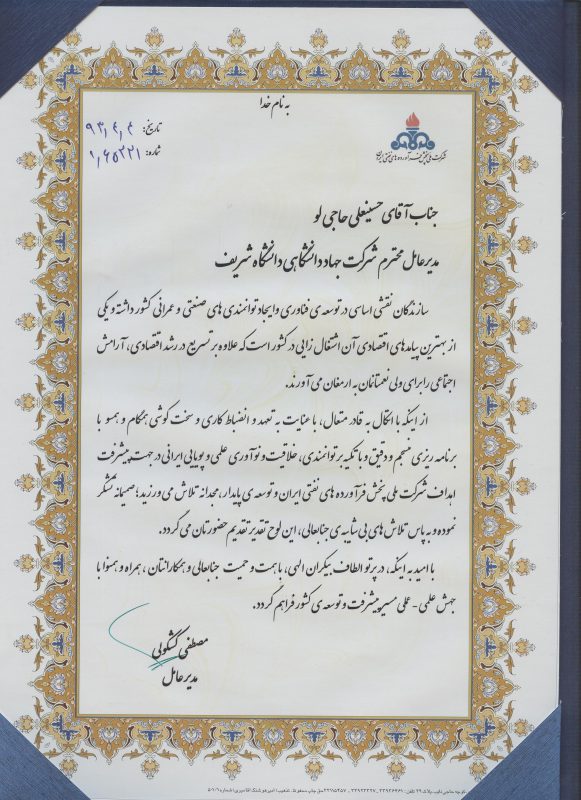 به نام خدا
تاریخ: ۹۳/۴/۴
شماره: ۱/۶۵۳۲۱
شرکت ملی پخش فرآورده های نفتی ایران
جناب آقای حسینعلی حاجی لو
مدیر عامل محترم شرکت جهاد دانشگاهی دانشگاه شریف
سازندگان نقشی اساسی در توسعه ی فناوری و ایجاد توانمندی های صنعتی و عمرانی کشور داشته و یکی
از بهترین پیامدهای اقتصادی آن اشتغال زایی در کشور است که علاوه بر تسریع در رشد اقتصادی، آرامش
اجتماعی را برای ولی نعمتانمان به ارمغان می آورند.
از اینکه با اتکال به قادر متعال، با عنایت به تعهد و انضباط کاری و سخت کوشی همگام و همسو با
برنامه ریزی منسجم و دقیق و با تکیه بر توانمندی، خلاقیت و نوآوری علمی و پویایی ایرانی در جهت پیشرفت
اهداف شرکت ملی پخش فرآورده های نفتی ایران و توسعه ی پایدار، مجدانه تلاش می ورزید؛ صمیمانه تشکر
نموده و به پاس تلاش های بی شایبه ی جنابعالی، این لوح تقدیر تقدیم حضورتان می گردد.
با امید به اینکه، در پرتو الطاف بیکران الهی، با همت و حمیت جنابعالی و همکارانتان، همراه و همنوا با
جهش علمی - عملی مسیر پیشرفت و توسعه ی کشور فراهم گردد.
مصطفی کشکولی
مدیر عامل